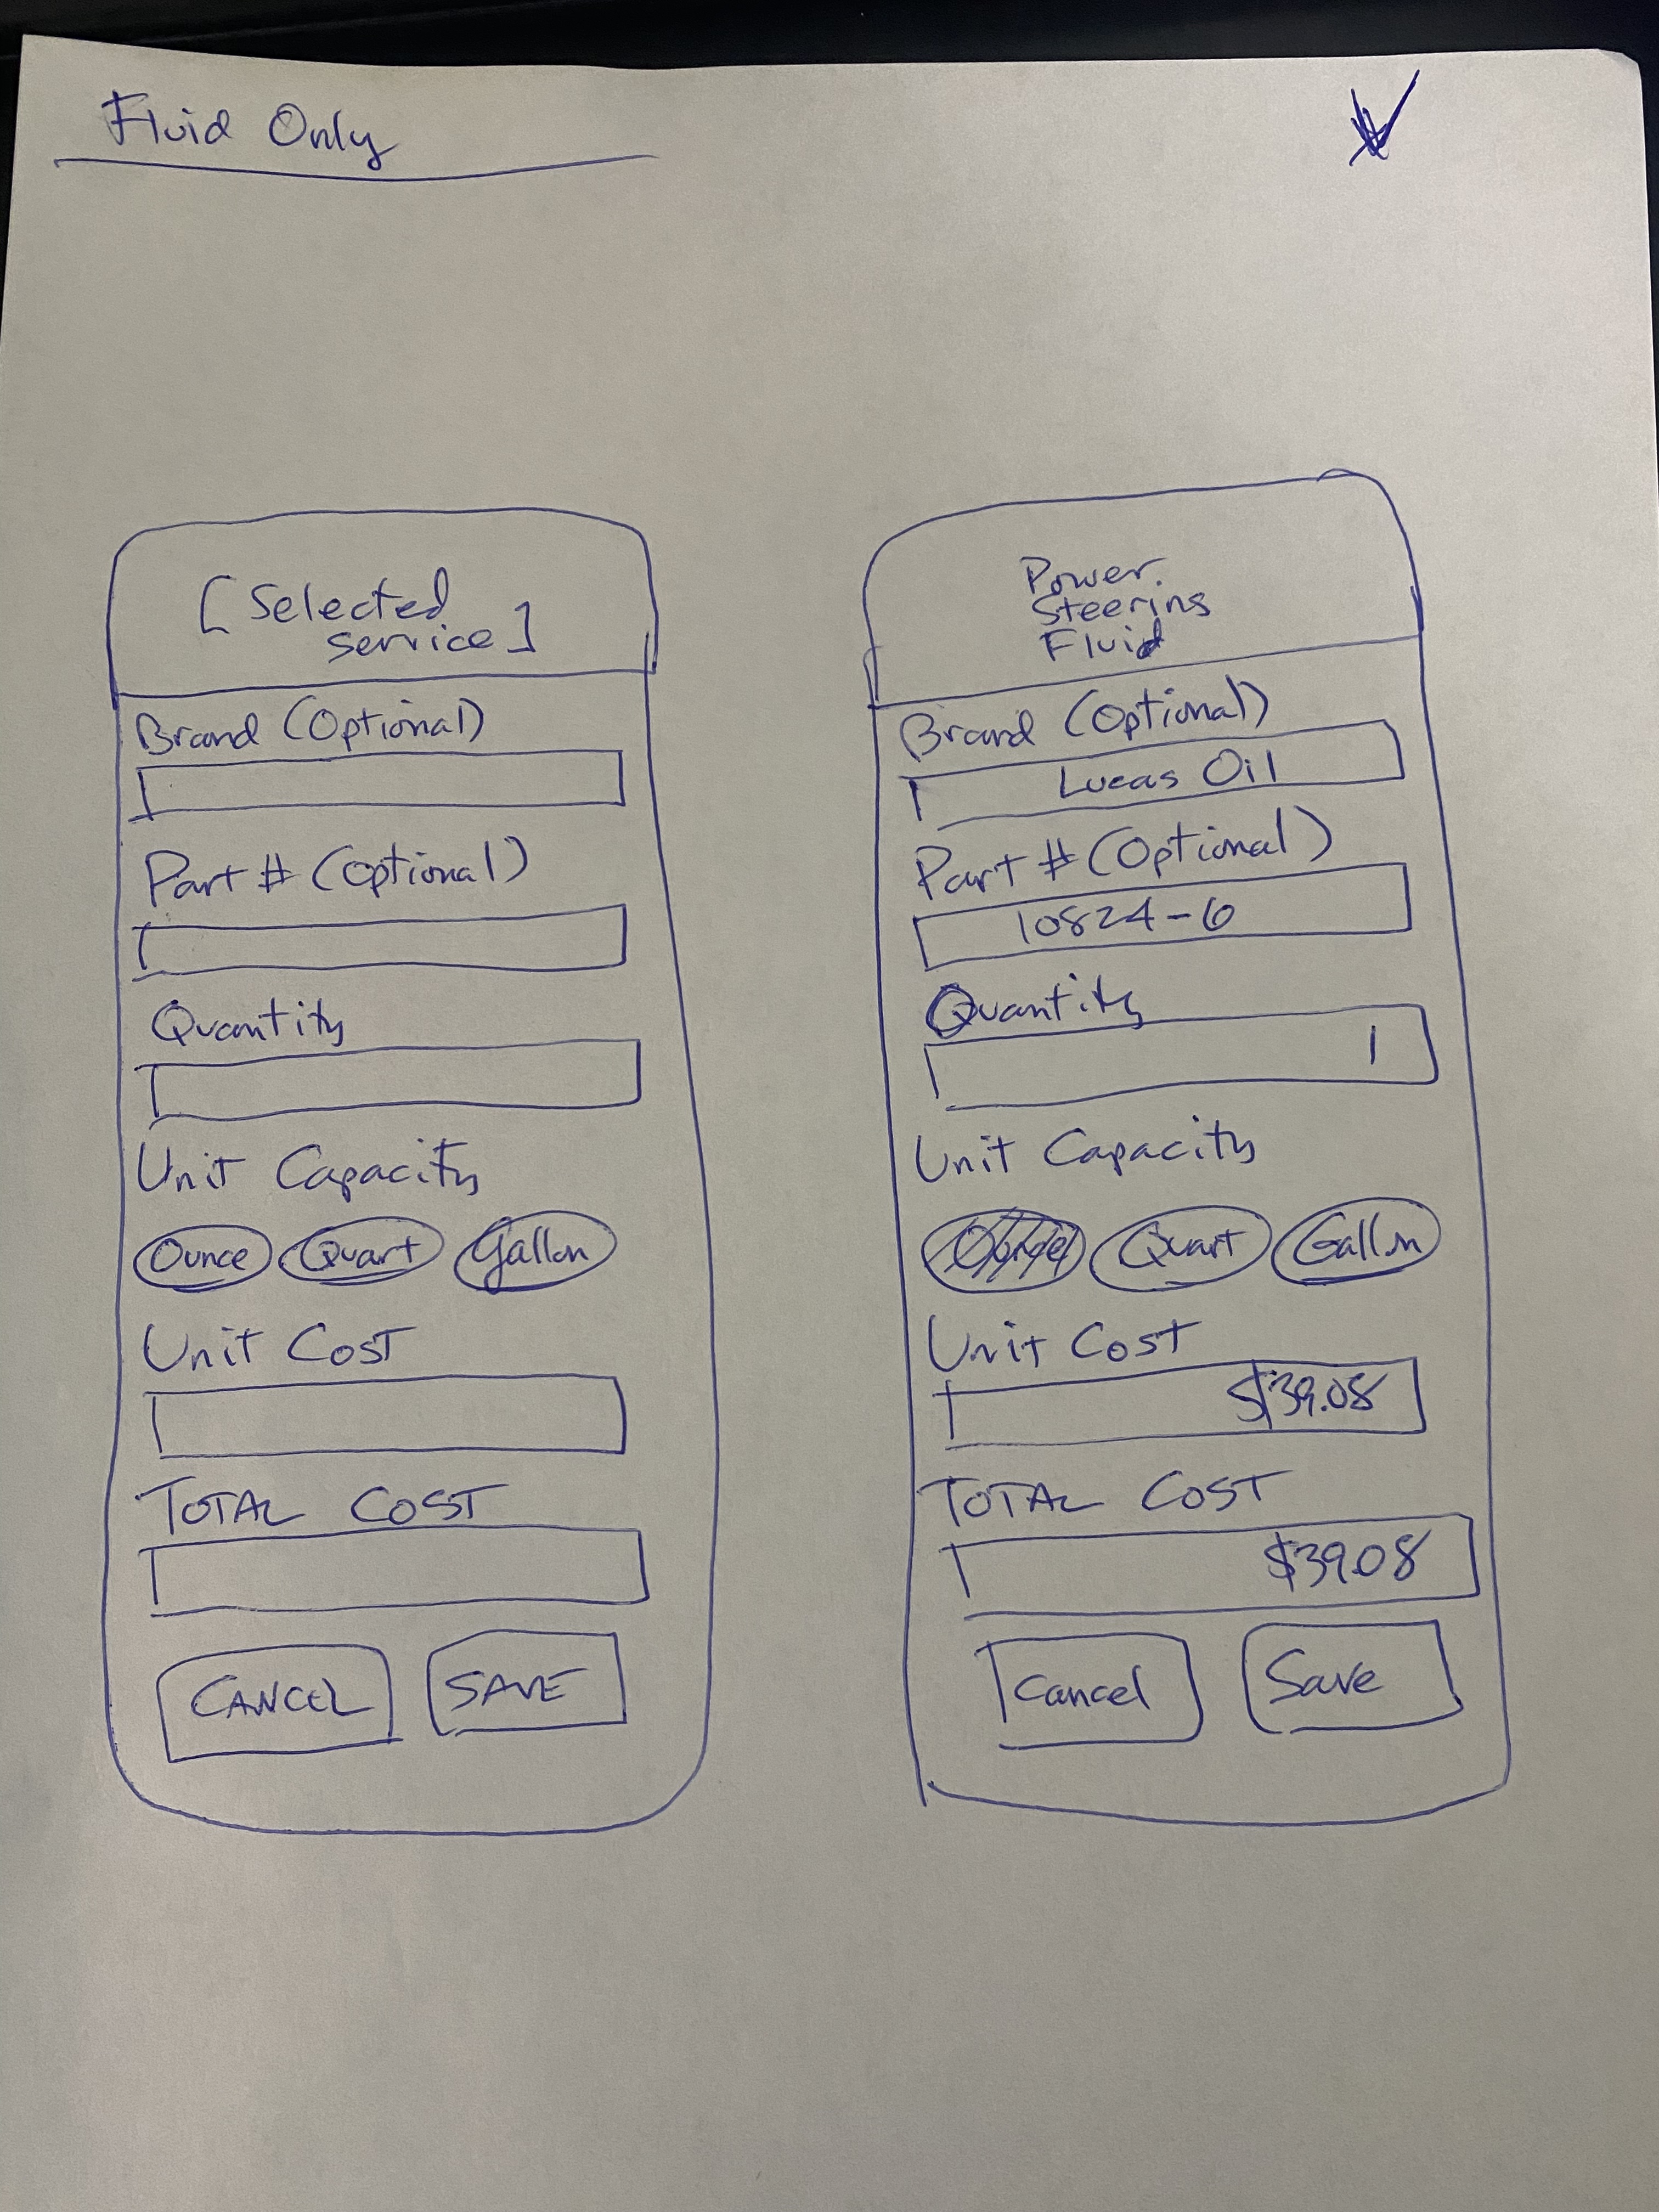 Fluid Only
[Selected
service]
Brand (Optional)
Part # (Optional)
Quantity
Unit Capacity
Ounce Quart Gallon
Unit Cost
TOTAL COST
CANCEL SAVE
Power
Steering
Fluid
Brand (Optional)
Lucas Oil
Part # (Optional)
10824-6
Quantity
1
Unit Capacity
Ounce Quart Gallon
Unit Cost
$39.08
TOTAL COST
$39.08
Cancel Save